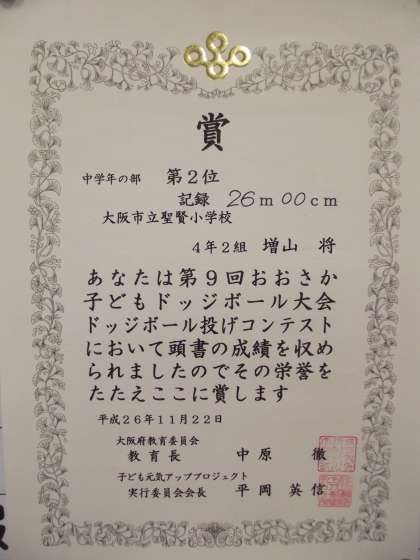 賞
中学年の部 第2位
記録 26m00cm
大阪市立聖賢小学校
4年2組 増山 将
あなたは第9回おおさか
子どもドッジボール大会
ドッジボール投げコンテスト
において頭書の成績を収め
られましたのでその栄誉を
たたえここに賞します
平成26年11月22日
大阪府教育委員会
教育長 中原 徹
子ども元気アッププロジェクト
実行委員会会長 平岡 英信